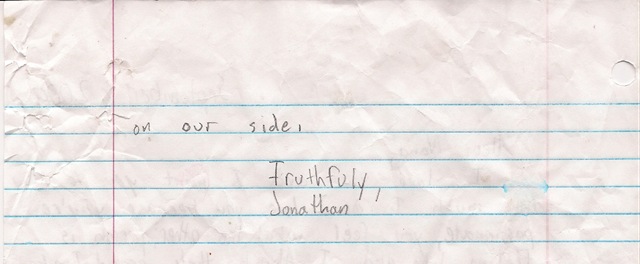 on our side.
Truthfuly,
Jonathan